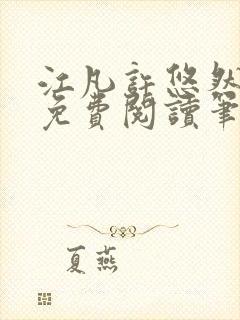 江凡許悠然
免費閱讀筆
夏燕